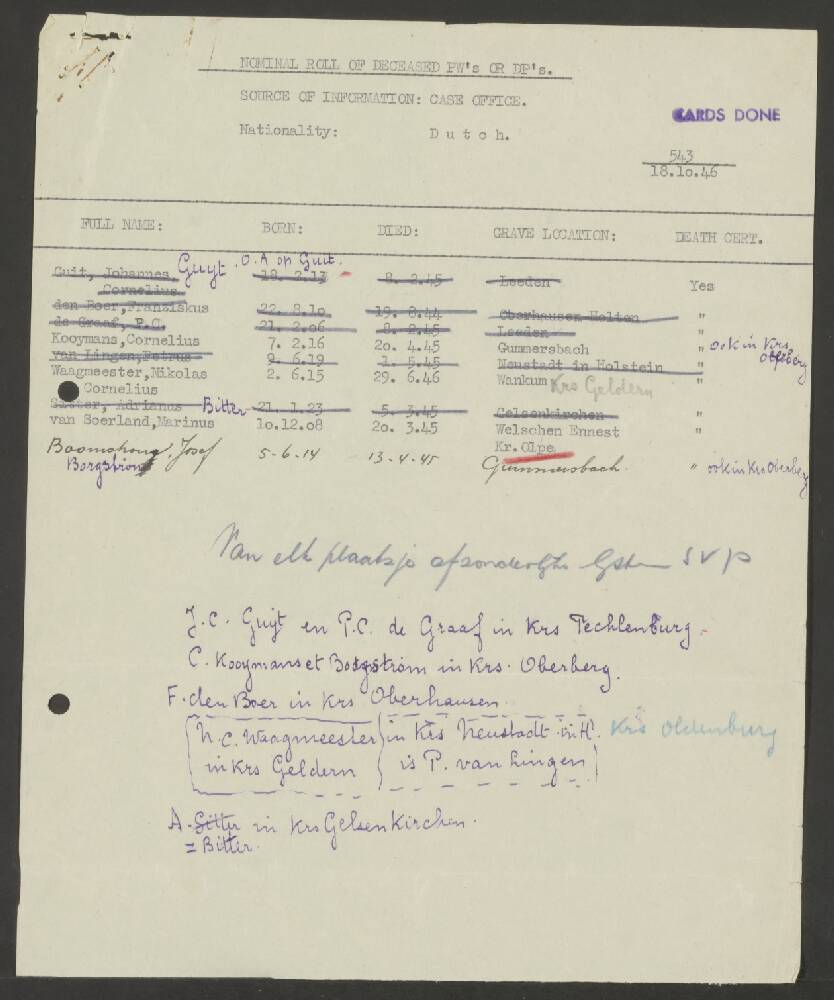 NOMINAL ROLL OF DECEASED PW's OR DP's.
SOURCE OF INFORMATION: CASE OFFICE.
CARDS DONE
Nationality: D u t c h.
543
18.10.46
FULL NAME: BORN: DIED: GRAVE LOCATION: DEATH CERT.
Guit, Johannes, Guyt. O.A op Guit. 18. 2.13 8. 2.45 Leeden Yes
Cornelius
den Boer,Franziskus 22. 8.10 19. 8.44 Oberhausen Holten "
de Graaf, P.C. 21. 2.06 8. 2.45 Leeden "
Kooymans,Cornelius 7. 2.16 20. 4.45 Gummersbach " ook in Krs. Oberg
van Lingen,Petrus 9. 6.19 1. 5.45 Neustadt in Holstein "
Waagmeester,Nikolas 2. 6.15 29. 6.46 Wankum Krs Geldern "
Cornelius
Sitter, Adrianus Bitter 21. 1.23 5. 3.45 Gelsenkirchen "
van Soerland,Marinus 10.12.08 20. 3.45 Welschen Ennest "
Kr. Olpe
Josef 5-6-14 13-4-45 Gummersbach. " ook in Krs Oberberg
Borgström
Van elk plaatsje afzonderlijke lijsten S V P
J.C. Guijt en P.C. de Graaf in Krs Techlenburg.
C. Kooymans et Borgström in Krs. Oberberg.
F. den Boer in Krs Oberhausen.
N.C. Waagmeester in Krs Neustadt in H. Krs Oldenburg
in Krs Geldern is P. van Lingen
A. Sitter in Krs Gelsenkirchen.
= Bitter.